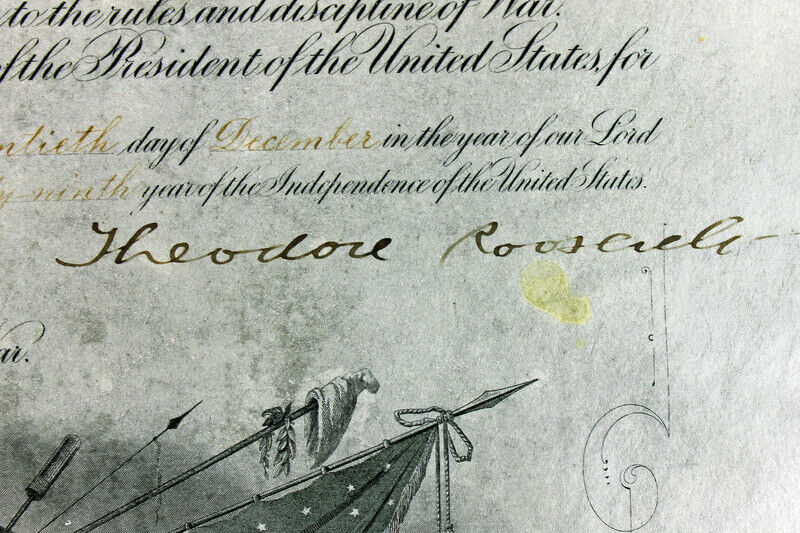 to the rules and discipline of War.
of the President of the United States, for
ntieth day of December in the year of our Lord
ty-ninth year of the Independence of the United States.
Theodore Roosevelt
War.